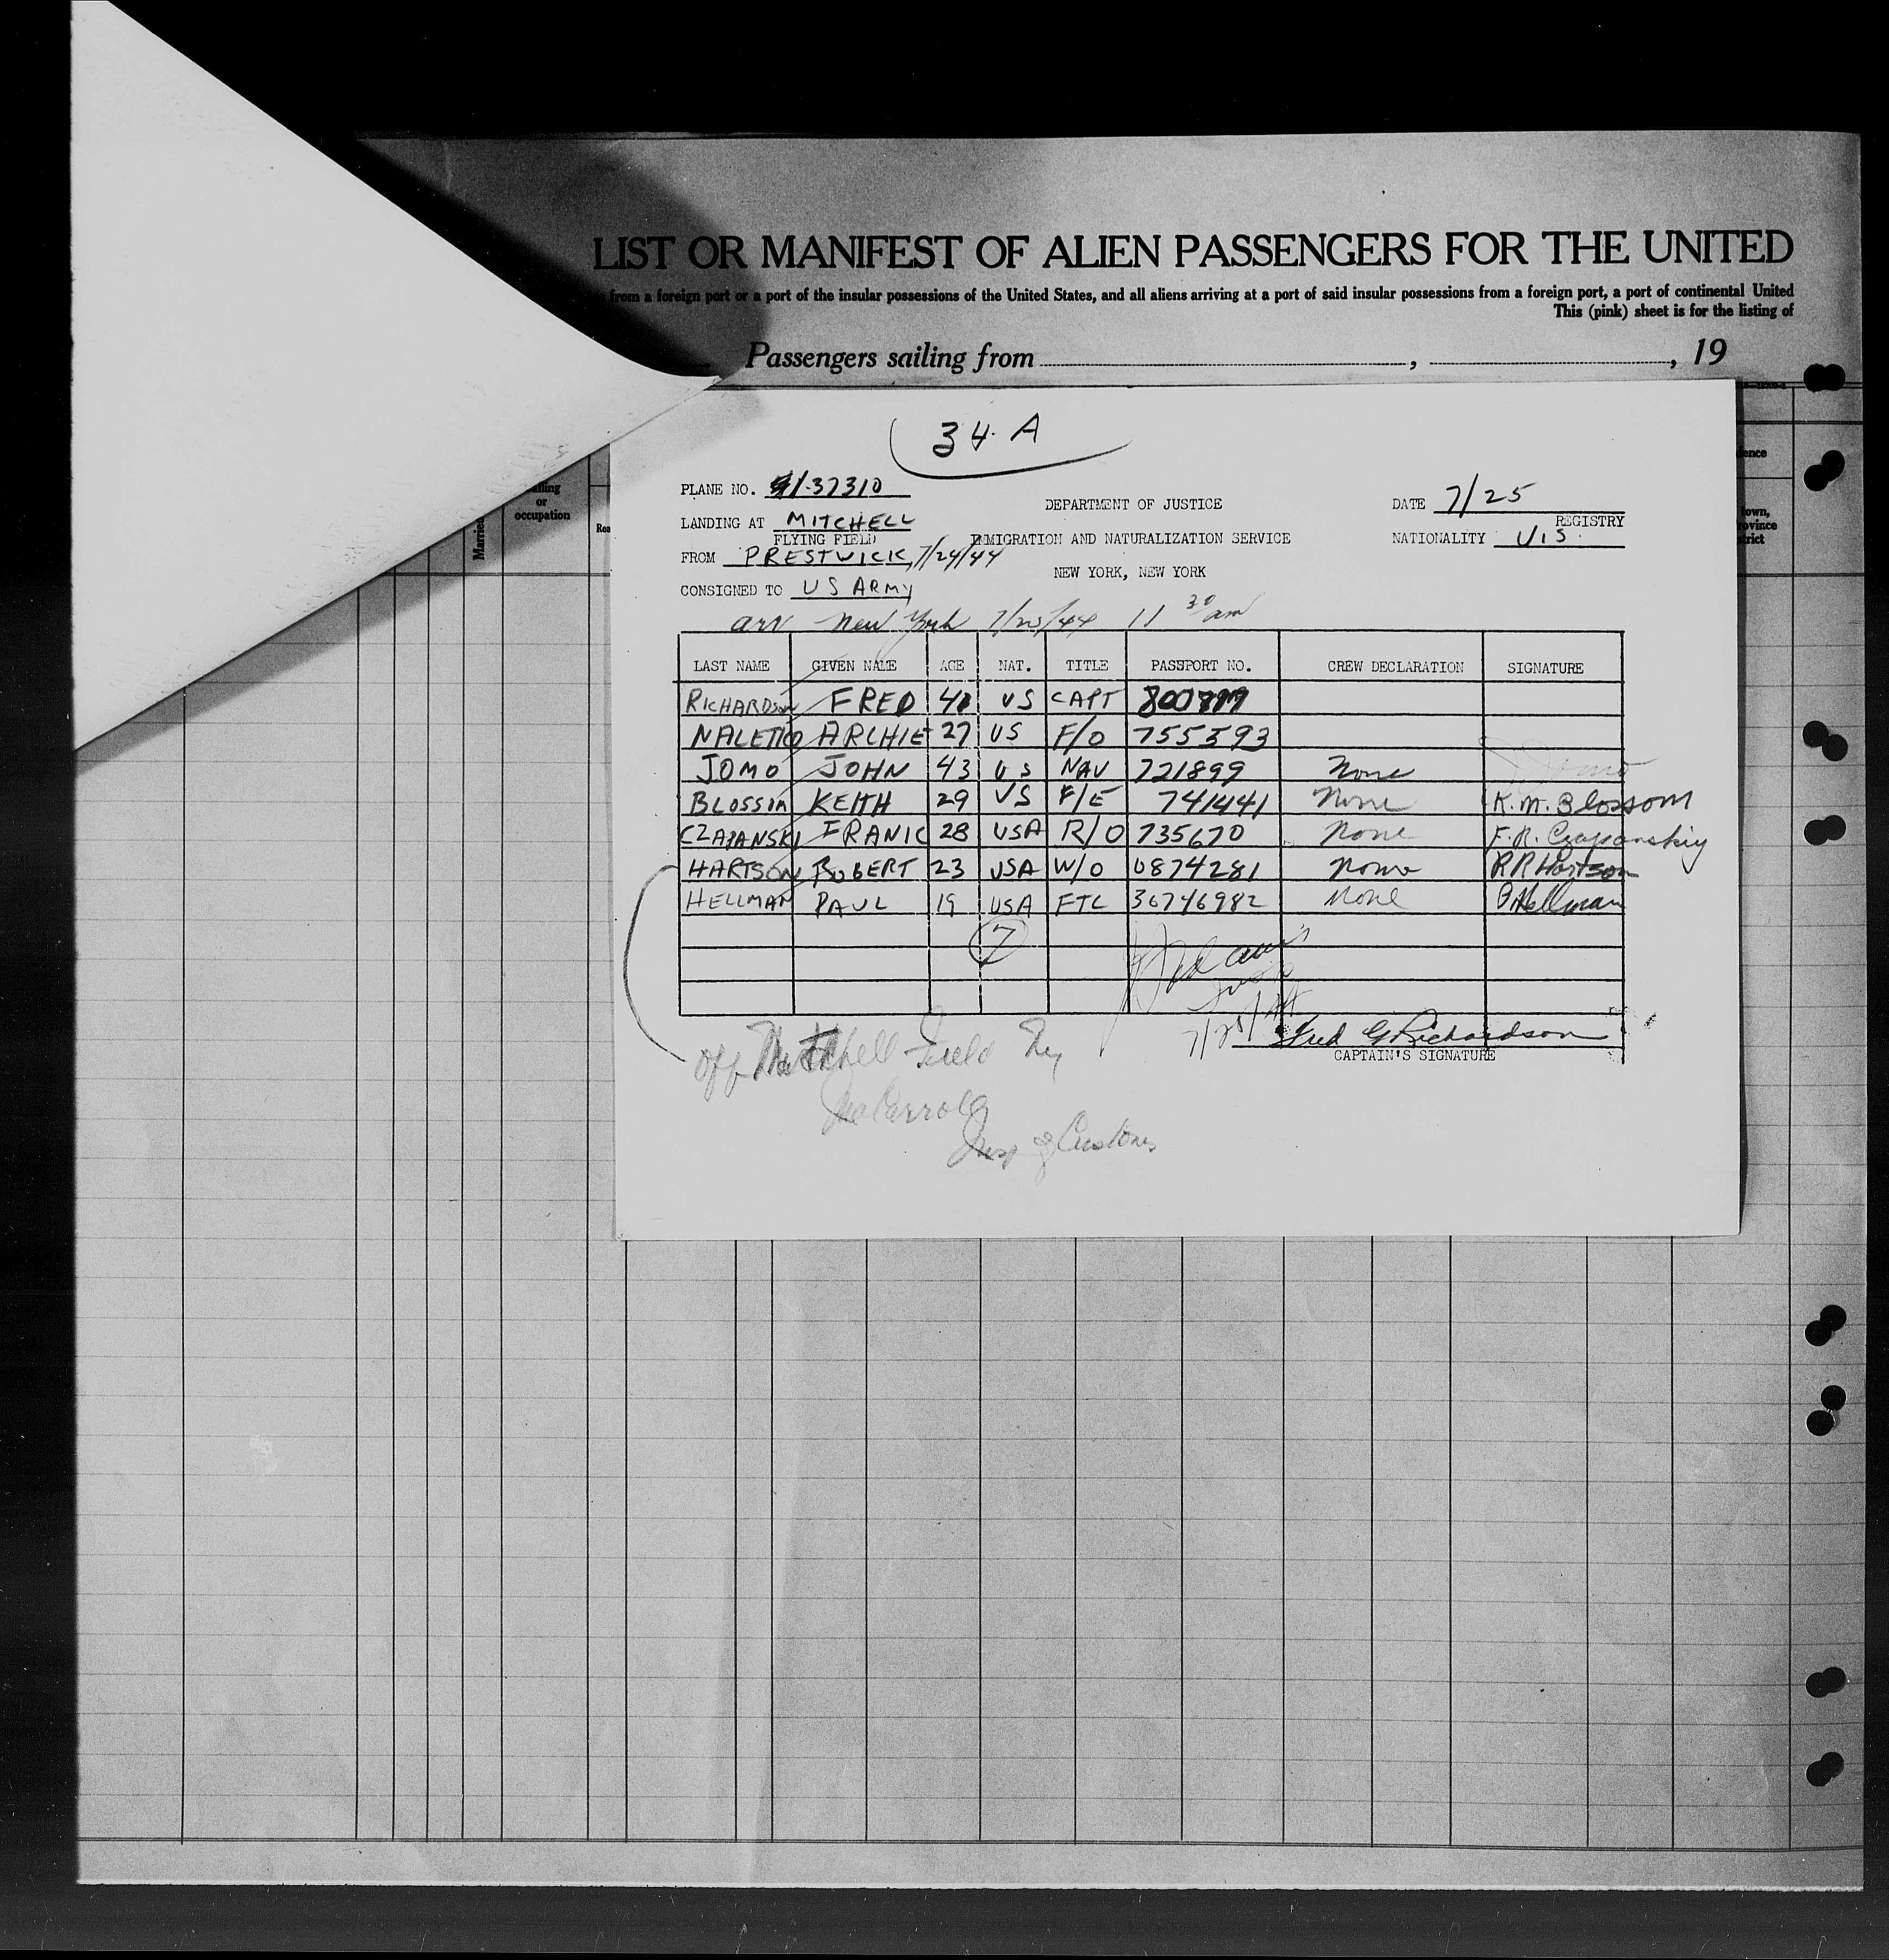 LIST OR MANIFEST OF ALIEN PASSENGERS FOR THE UNITED
from a foreign port or a port of the insular possessions of the United States, and all aliens arriving at a port of said insular possessions from a foreign port, a port of continental United
This (pink) sheet is for the listing of
Passengers sailing from , , 19
34 A
PLANE NO. 41-37310
DEPARTMENT OF JUSTICE
DATE 7/25
LANDING AT MITCHELL
REGISTRY
FLYING FIELD
IMMIGRATION AND NATURALIZATION SERVICE
NATIONALITY U.S.
FROM PRESTWICK, 7/24/44
NEW YORK, NEW YORK
CONSIGNED TO US ARMY
arr New York 7/25/44 11 30 am
LAST NAME GIVEN NAME AGE NAT. TITLE PASSPORT NO. CREW DECLARATION SIGNATURE
RICHARDSON FRED US CAPT
ARCHIE 27 US F/O 755593
JOMO JOHN 43 US NAV 721899 None Jomo
BLOSSOM KEITH 29 US F/E 741441 None K.M. Blossom
CZAPANSKI FRANK 28 USA R/O 735670 None F.R. Czapanskiy
HARTSON ROBERT 23 USA W/O 0874281 None RR Hartson
HELLMAN PAUL 19 USA 36746982 None P Hellman
7
7/25/44
Fred G Richardson
CAPTAIN'S SIGNATURE
Off Mitchell Field NY
Insp of Customs
calling
or
occupation
Married
Rea
ence
town,
ovince
trict